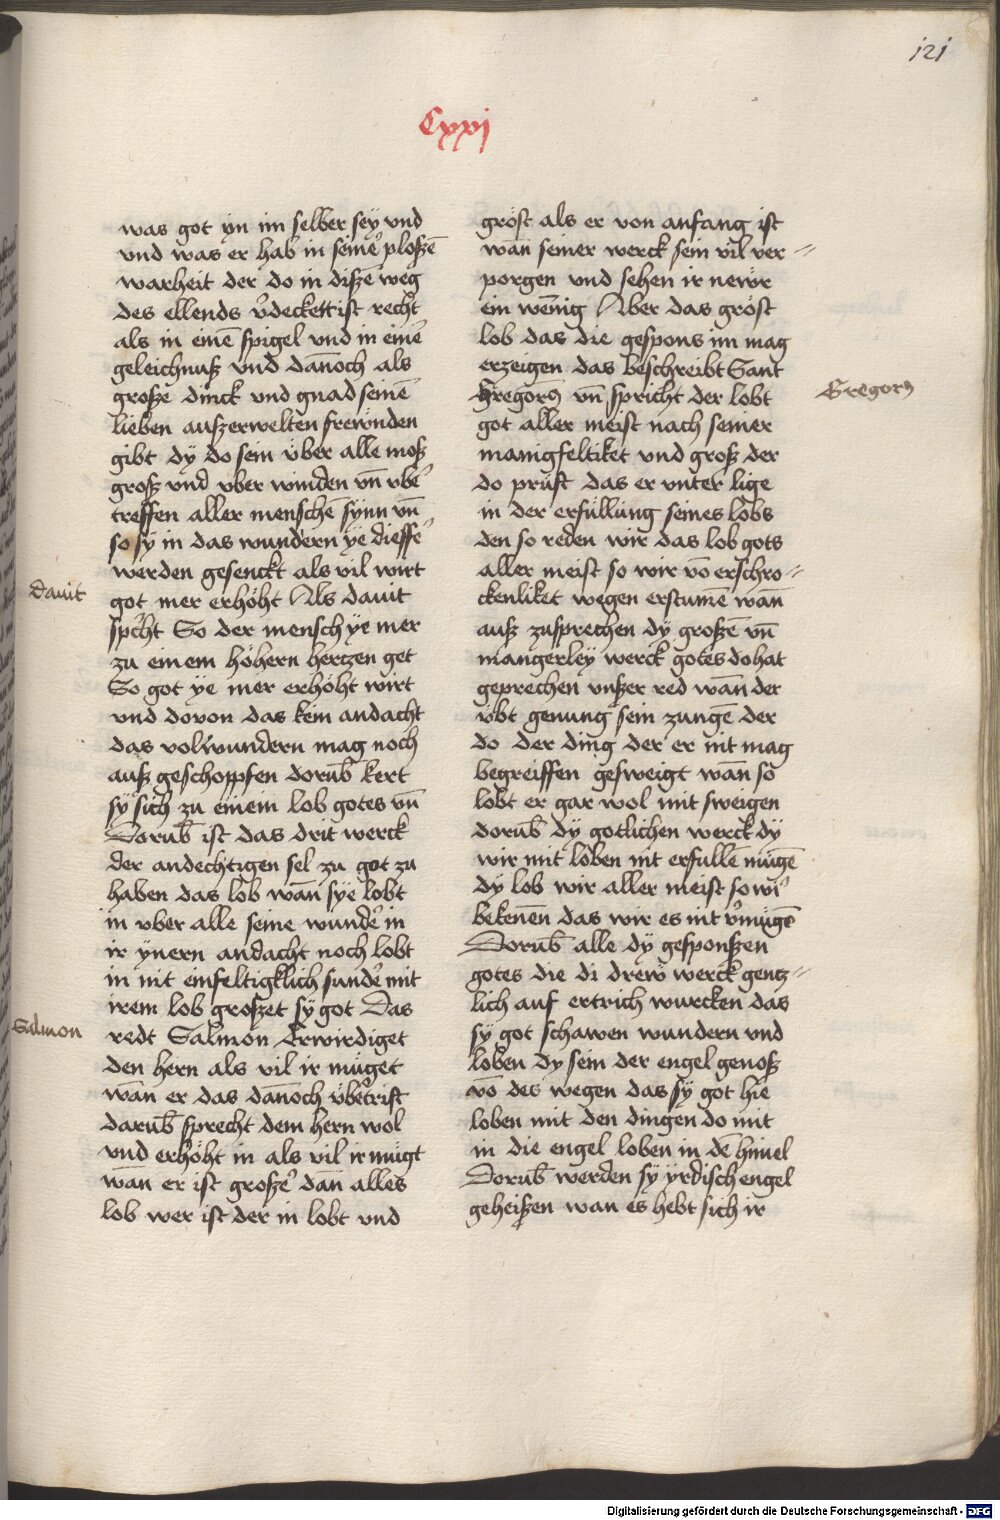 121
Cxxj
was got yn im selber sey vnd
vnd was er hab in seine᷑ ploßen̄
warheit der do in dißē weg
des ellends v᷑deckett ist recht
als in einē spigel vnd in einē
geleichnuß vnd dan̄och als
große dinck vnd gnad seinē
lieben außerwelten frewnden
gibt dÿ do sein v̈ber alle moß
groß vnd vber winden vn̄ vbe᷑
treffen aller menschē synn vn̄
so sÿ in das wundern ÿe dieffe᷑
werden gesenckt als vil wirt
dauit
got mer erhöht Als dauit
spr̄cht So der mensch ÿe mer
zu einem höhern hertzen get
So got ÿe mer erhöht wirt
vnd dovon das kein andacht
das volwundern mag noch
auß geschoppfen dorūb kert
sÿ sich zu einem lob gotes vn̄
Dorūb ist das drit werck
der andechtigen sel zu got zu
haben das lob wan̄ sÿe lobt
in vber alle seine wunde᷑ in
ir ÿnern andacht noch lobt
in nit einfeltigklich sunde᷑ mit
irem lob großet sÿ got Das
Salmon
redt Salmon Erwirdiget
den hern als vil ir müget
wan̄ er das dan̄och v̈bet᷑rist
darūb sprecht dem hern wol
vnd erhöht in als vil ir mügt
wan̄ er ist große᷑ dan̄ alles
lob wer ist der in lobt vnd
gröst als er von anfang ist
wan̄ seiner werck sein vil ver⸗
porgen vnd sehen ir newr
ein wenig Aber das gröst
lob das die gespons im mag
erzeigen das beschreibt Sant
Gregorꝰ
Gregorꝰ vn̄ spricht der lobt
got aller meist nach seiner
manigfeltiket vnd groß der
do prüft das er vnter lige
in der erfüllung seines lobs
den so reden wir das lob gots
aller meist so wir vō erschro⸗
ckenliket wegen erstumē wan̄
auß zusprechen dÿ großē vn̄
mangerleÿ werck gotes do hat
geprechen vnßer red wan̄ der
v̈bt genung sein zungē der
do der ding der er nit mag
begreiffen gesweigt wan̄ so
lobt er gar wol mit sweigen
dorūb dÿ gotlichen werck dÿ
wir mit loben nit erfullē mügē
dÿ lob wir aller meist so wi᷑
bekenēn das wir es nit v᷑mügē
Dorūb alle dÿ gesponßen
gotes die di drew werck gentz⸗
lich auf ertrich wurcken das
sÿ got schawen wundern vnd
loben dy sein der engel genoß
vō des wegen das sÿ got hie
loben mit den dingen do mit
in die engel loben in dē himel
Dorūb werden sÿ ÿrdisch engel
geheißen wan es hebt sich ir
Digitalisierung gefördert durch die Deutsche Forschungsgemeinschaft - DFG